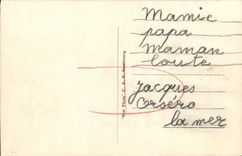 Mamie
papa
Maman
loute
Jacques
Orséro
la mer